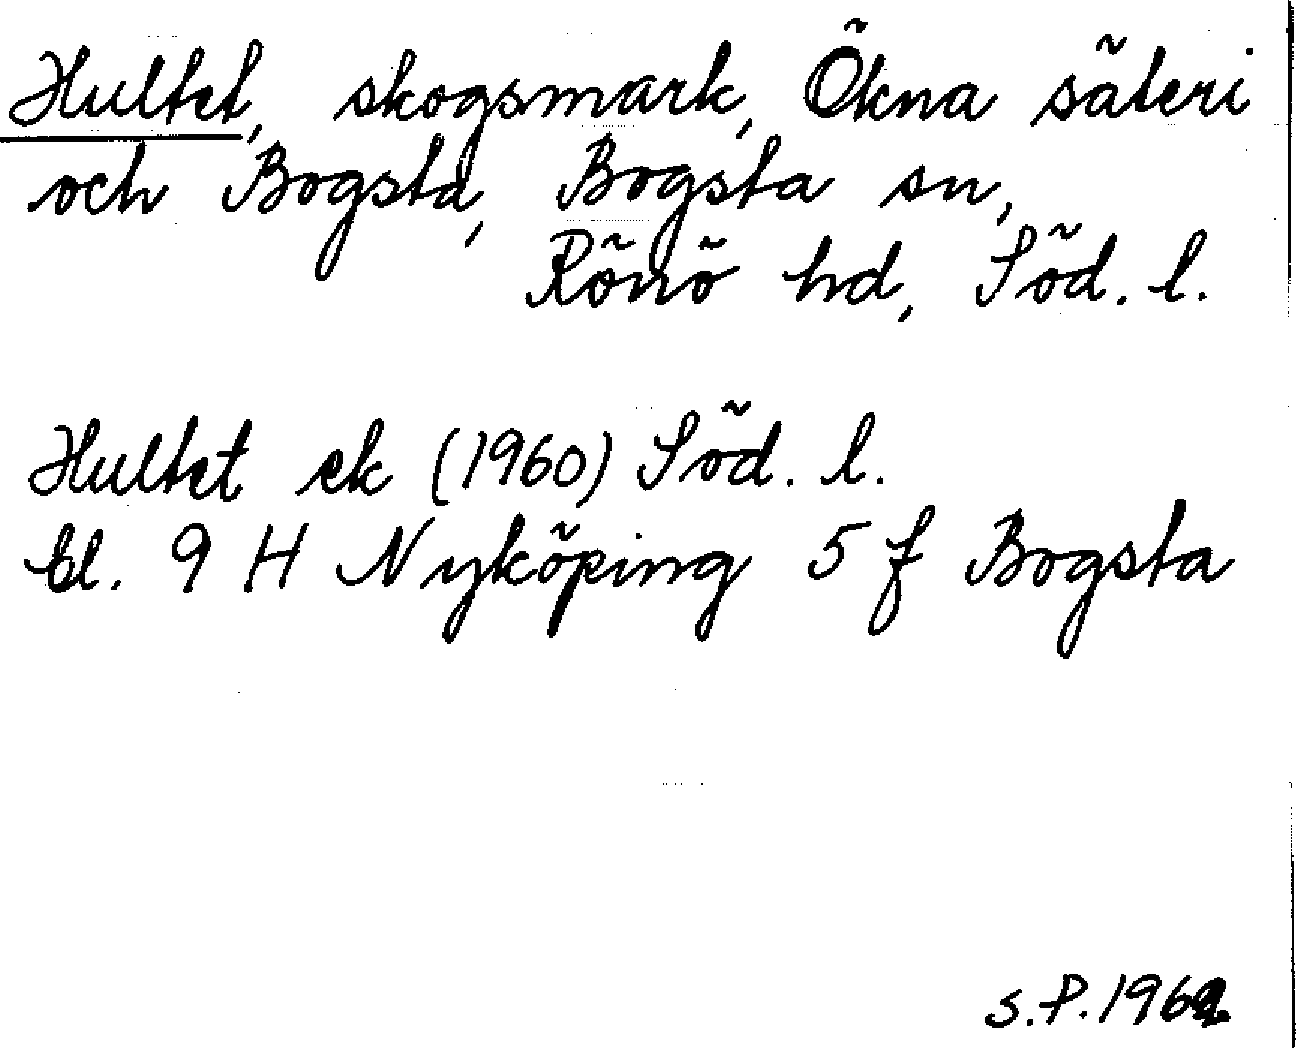 Hultet, skogsmark, Ökna säteri
och Bogsta, Bogsta sn,
Rönö hd, Söd. l.
Hultet ek (1960) Söd. l.
bl. 9 H Nyköping 5 f Bogsta
S.P.